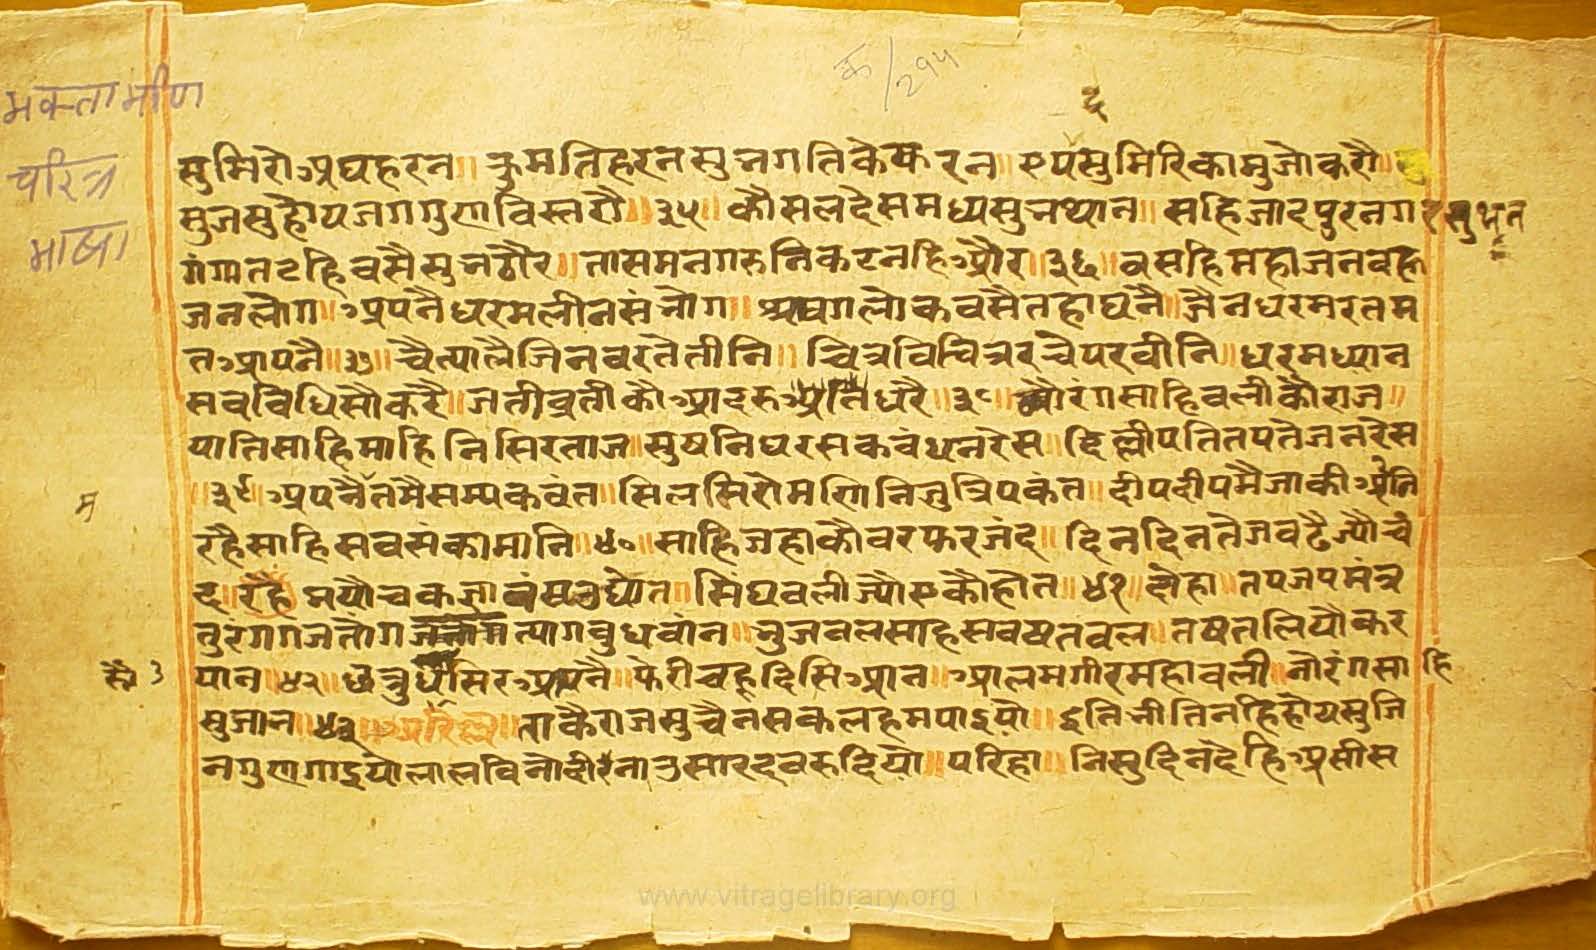 भक्तामणि
चरित्र
भाषा
क/२१५
सुमिरो अघहरन॥ कुमतिहरन सुभगति के करन॥ एप सुमिरि का मुजो करौ॥
सुजसु होय जग गुण विस्तरौ॥३५॥ कौसलदेस मध्य सुभ थान॥ सहिजादपुर नगर सुथान
गंगा तट हि वसै सुभ ठौर॥ ता सम नगरु निकट नहि और॥३६॥ वसहि महाजन वहु
जन लोग॥ अपनै धरम लीन संभोग॥ श्रावग लोक वसै तहा घनै॥ जैन धरम रत म
त आपनै॥३७॥ चैत्यालै जिनवर ते तीनि॥ चित्र विचित्र रचे परवीनि॥ धरम ध्यान
सव विधि सौ करै॥ जती व्रती कौ आदरु अति धरै॥३८॥ औरंगसाहि वली कौ राज॥
पातिसाहि माहिनि सिरताज॥ सुषनिध रस कवंध नरेस॥ दिल्लीपति तप तेज नरेस
॥३९॥ अपनै मतमै सम्यकवंत॥ सील सिरोमणि निजु त्रिपकंत॥ दीप दीप मै जाकी आनि
रहै साहि सव संका मानि॥४०॥ साहिजहा कौ वर फरजंद॥ दिन दिन तेज वढै ज्यौ चं
द॥ रहै भयौ चकता वंस उद्योत॥ सिंघवली ज्यौ एकौ होत॥४१॥ दोहा॥ तप जप मंत्र
तुरंग गज जोग त्याग वुधवान॥ भुज वल साहस वषत वल॥ तषत लियौ कर
पान॥४२॥ छत्रु धर्यौ सिर अपनै॥ फेरी चहू दिसि आन॥ आलमगीर महावली॥ नौरंगसाहि
सुजान॥४३॥ अरिल्ल॥ ताकै राज सुचैन सकल हम पाइयौ॥ इति भीति नहि होय सु जि
न गुण गाइयौ लाल विनोदी
परिहा॥ निसु दिन देहि असीस